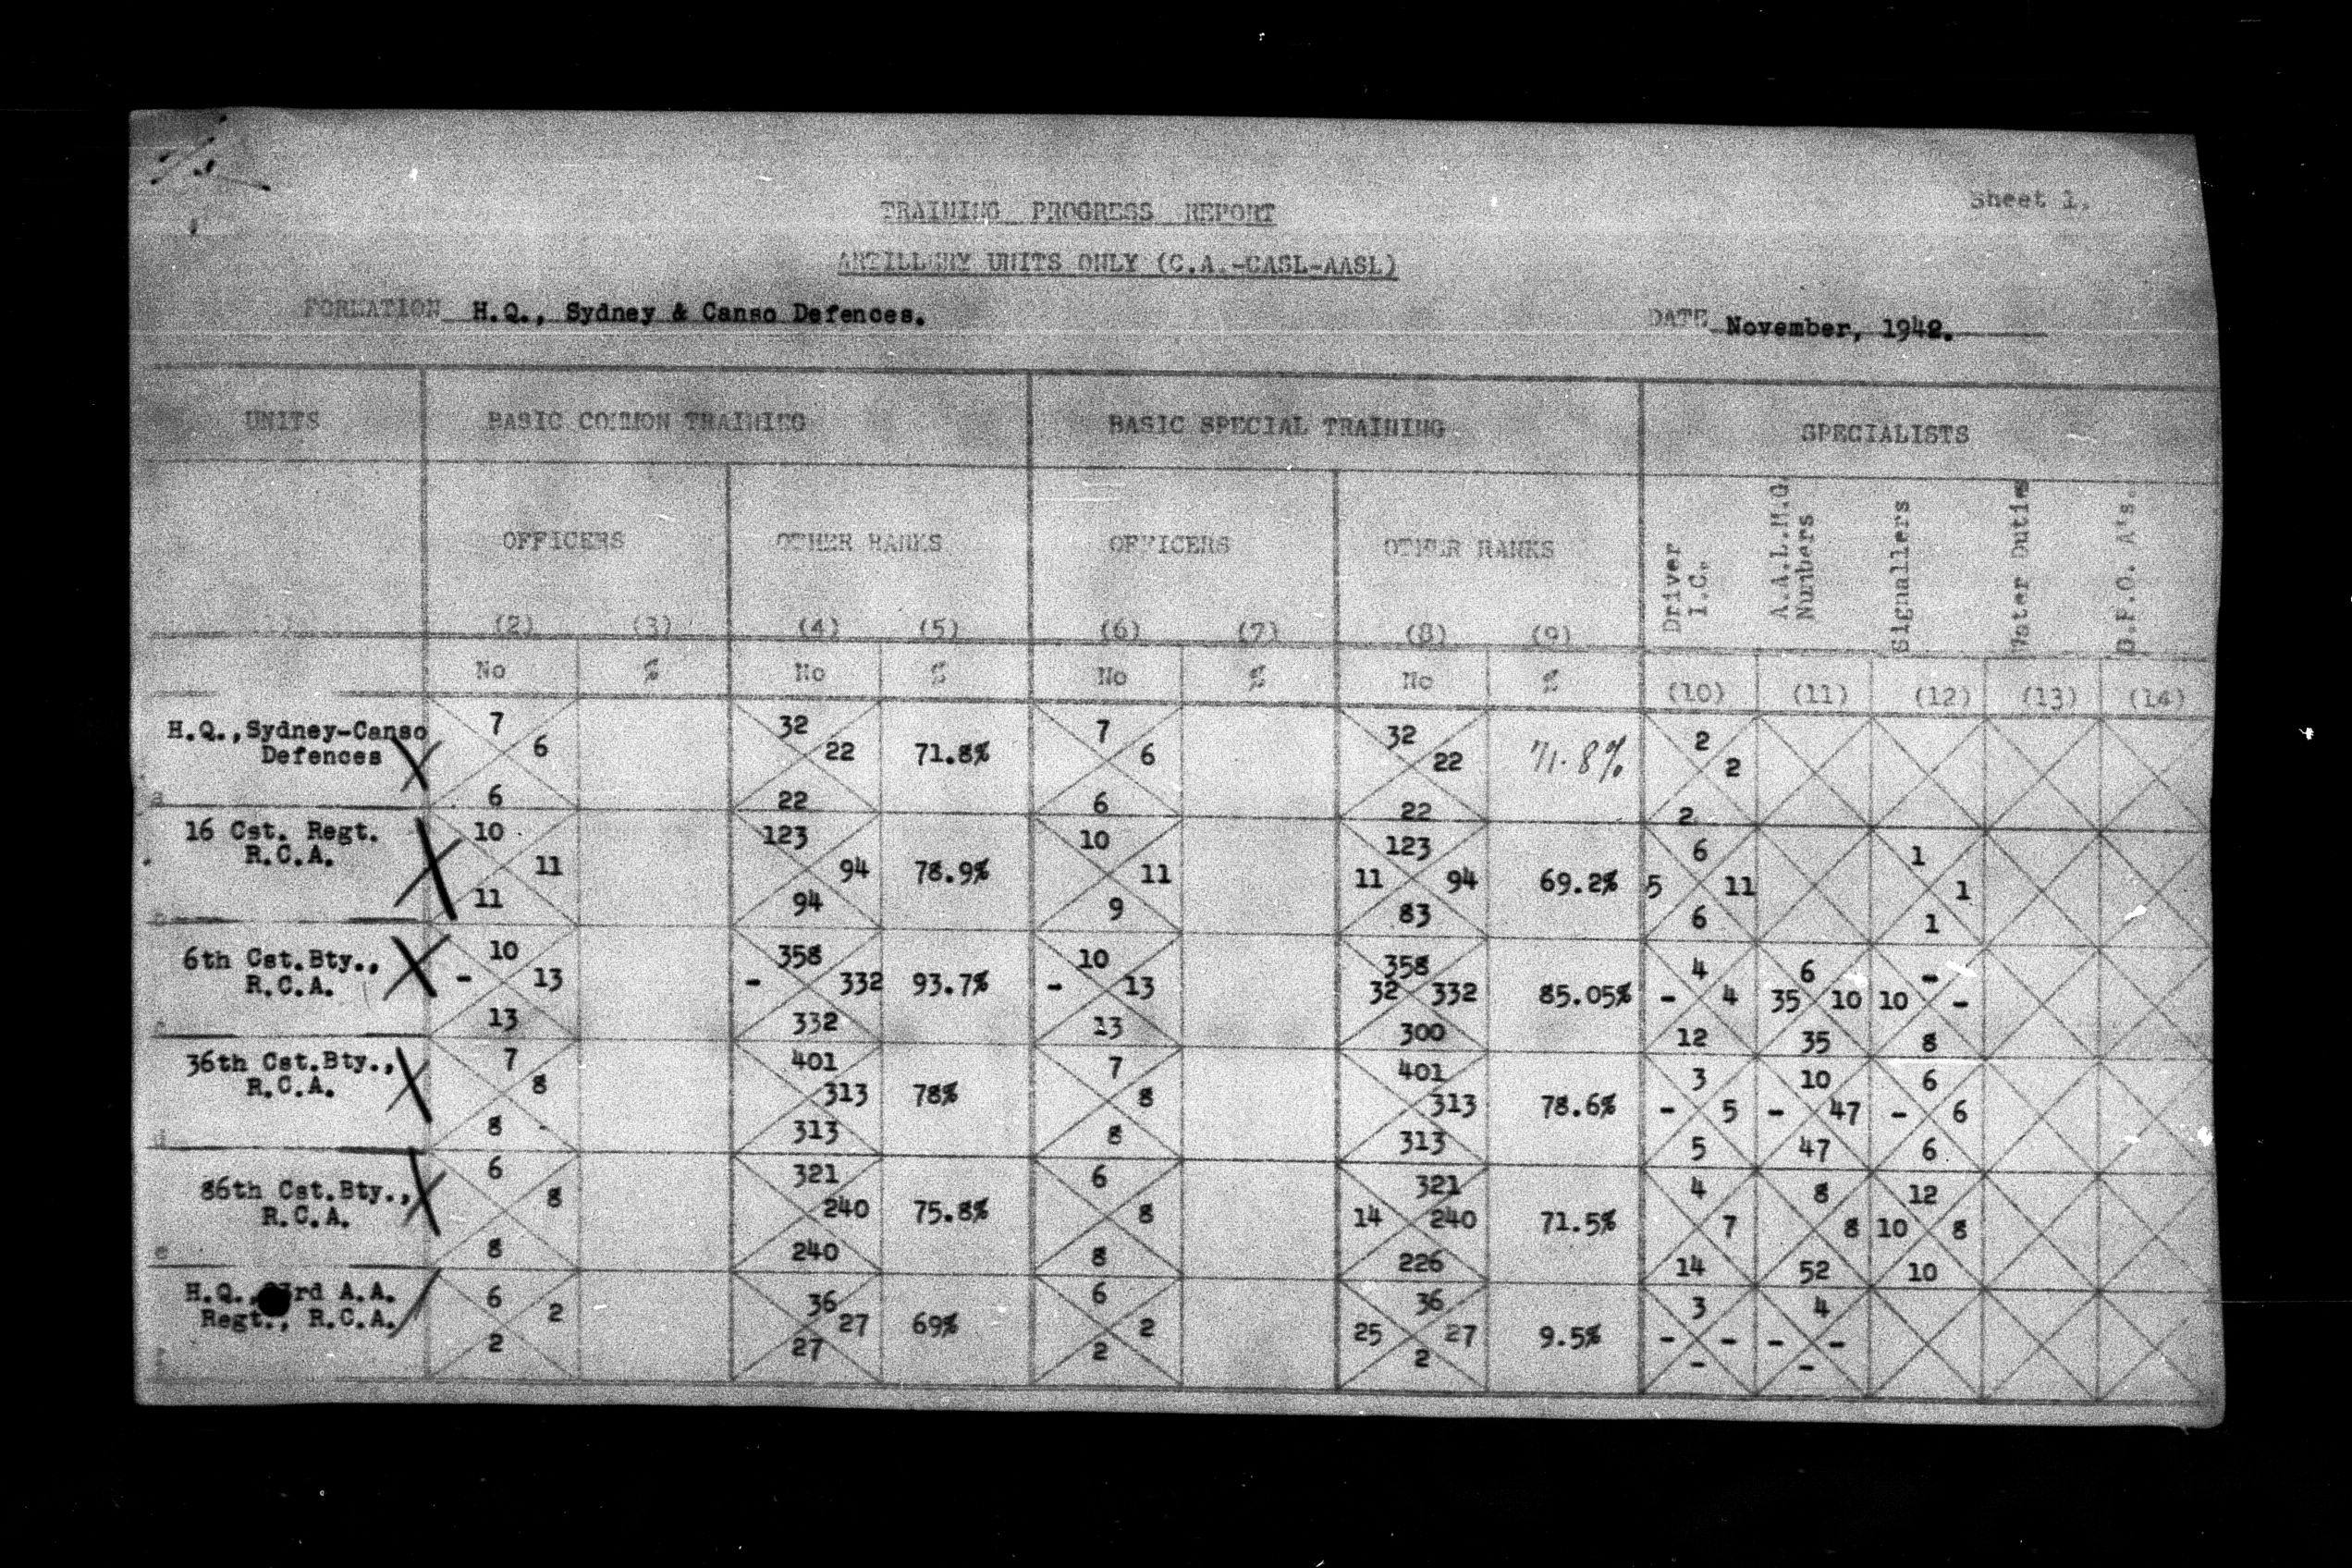 Sheet 1.
TRAINING PROGRESS REPORT
ARTILLERY UNITS ONLY (C.A.-CASL-AASL)
FORMATION H.Q., Sydney & Canso Defences. DATE November, 1942.
UNITS BASIC COMMON TRAINING BASIC SPECIAL TRAINING SPECIALISTS
OFFICERS OTHER RANKS OFFICERS OTHER RANKS
Driver I.C. A.A.L.M.G. Numbers Signallers Water Duties A's.
(2) (3) (4) (5) (6) (7) (8) (9)
No % No % No % No % (10) (11) (12) (13) (14)
H.Q.,Sydney-Canso 7 32 7 32 2
Defences 6 22 71.8% 6 22 71.8% 2
a 6 22 6 22 2
16 Cst. Regt. 10 123 10 123 6 1
R.C.A. 11 94 78.9% 11 11 94 69.2% 5 11 1
11 94 9 83 6 1
6th Cst.Bty., 10 358 10 358 4 6 -
R.C.A. - 13 - 332 93.7% - 13 32 332 85.05% - 4 35 10 10 -
13 332 13 300 12 35 8
36th Cst.Bty., 7 401 7 401 3 10 6
R.C.A. 8 313 78% 8 313 78.6% - 5 - 47 - 6
d 8 313 8 313 5 47 6
86th Cst.Bty., 6 321 6 321 4 8 12
R.C.A. 8 240 75.8% 8 14 240 71.5% 7 8 10 8
e 8 240 8 226 14 52 10
H.Q., 3rd A.A. 6 36 6 36 3 4
Regt., R.C.A. 2 27 69% 2 25 27 9.5% - - - -
2 27 2 2 - -